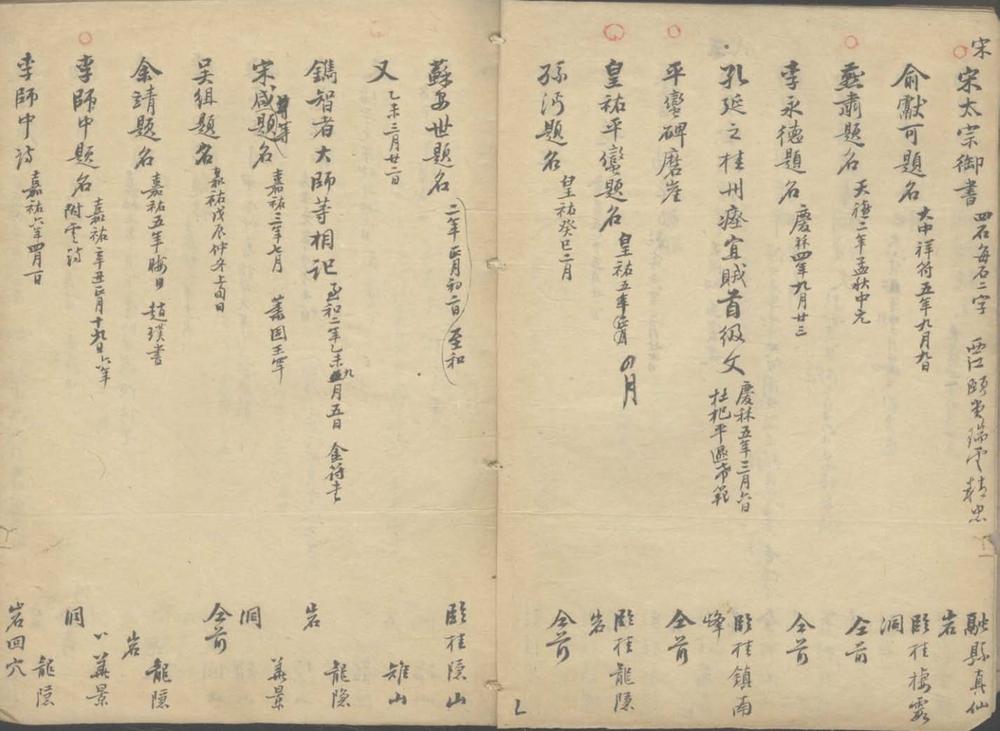 宋
宋太宗御書 四石每石二字 融縣真仙岩
俞獻可題名 大中祥符五年九月九日 臨桂棲霞洞
燕肅題名 天禧二年孟秋中元 仝前
李永德題名 慶林四年九月廿三 仝前
孔延之桂州瘞宜賊首級文 慶林五年三月六日 杜杞平 臨桂鎮南峰
平蠻碑磨崖 仝前
皇祐平蠻題名 皇祐五年 の月 臨桂龍隱岩
孫沔題名 皇祐癸巳二月 仝前
蘇安世題名 二年正月初二日 至和 臨桂隱山
又 乙未三月廿二日 雉山
鐫智者大師等相記 至和二年乙未九月五日 龍隱岩
宋咸題名 嘉祐二年七月 華景洞
吴組題名 嘉祐戊辰仲冬上旬日 仝前
余靖題名 嘉祐五年 日 趙璞書 龍隱岩
李師中題名 嘉祐辛丑正月十九日 附 詩 華景洞
李師中詩 嘉祐六年四月一日 龍隱岩四穴